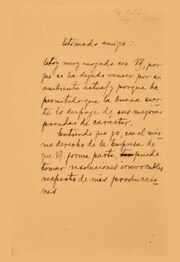 Estimado amigo:
Estoy muy enojado con Vd, por
qué se ha dejado vencer por su
ambiente actual, y porque ha
permitido que la buena suer-
te lo despoje de sus mejores
prendas de carácter.
Entiendo que yo, con el mis-
mo derecho de la Empresa de
que Vd forma parte puedo
tomar resoluciones irrevocables
respecto de mis produccio-
nes